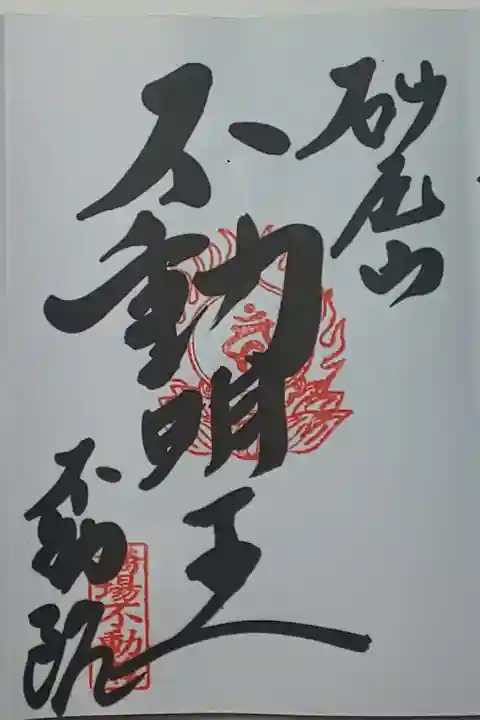 砂尾山
不動明王
不動院
橋場不動院